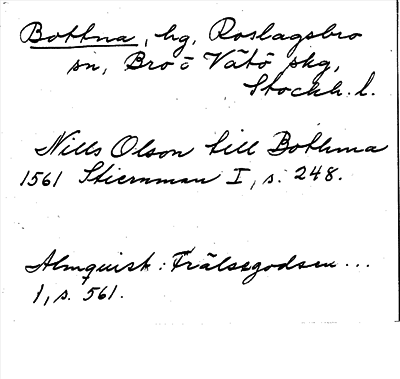 Bottna, hg, Roslagsbro
sn, Bro o Vätö skg,
Stockh. l.
Nills Olson till Bothna
1561 Stiernman I, s. 248.
Almquist: Frälsegodsen...
1, s. 561.